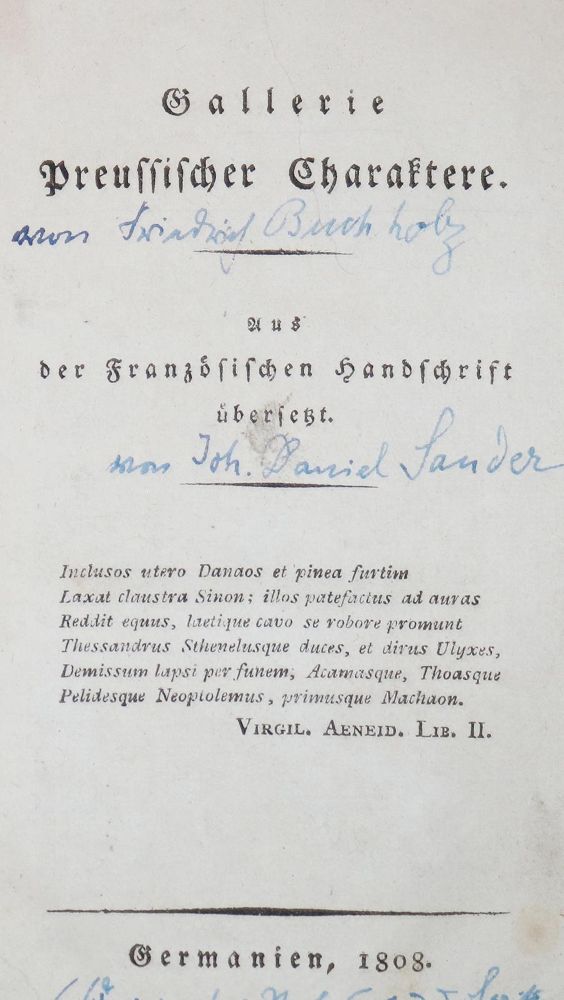 Gallerie
Preussischer Charaktere.
von Friedrich Buchholz
Aus
der Französischen Handschrift
übersetzt.
von Joh. Daniel Sander
Inclusos utero Danaos et pinea furtim
Laxat claustra Sinon; illos patefactus ad auras
Reddit equus, laetique cavo se robore promunt
Thessandrus Sthenelusque duces, et dirus Ulyxes,
Demissum lapsi per funem, Acamasque, Thoasque
Pelidesque Neoptolemus, primusque Machaon.
VIRGIL. AENEID. LIB. II.
Germanien, 1808.